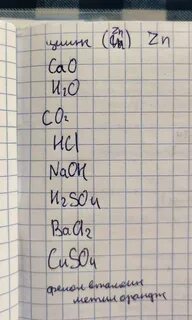 цинк (Zn) Zn
CaO
H₂O
CO₂
HCl
NaOH
H₂SO₄
BaCl₂
CuSO₄
фенолфталеин
метилоранж